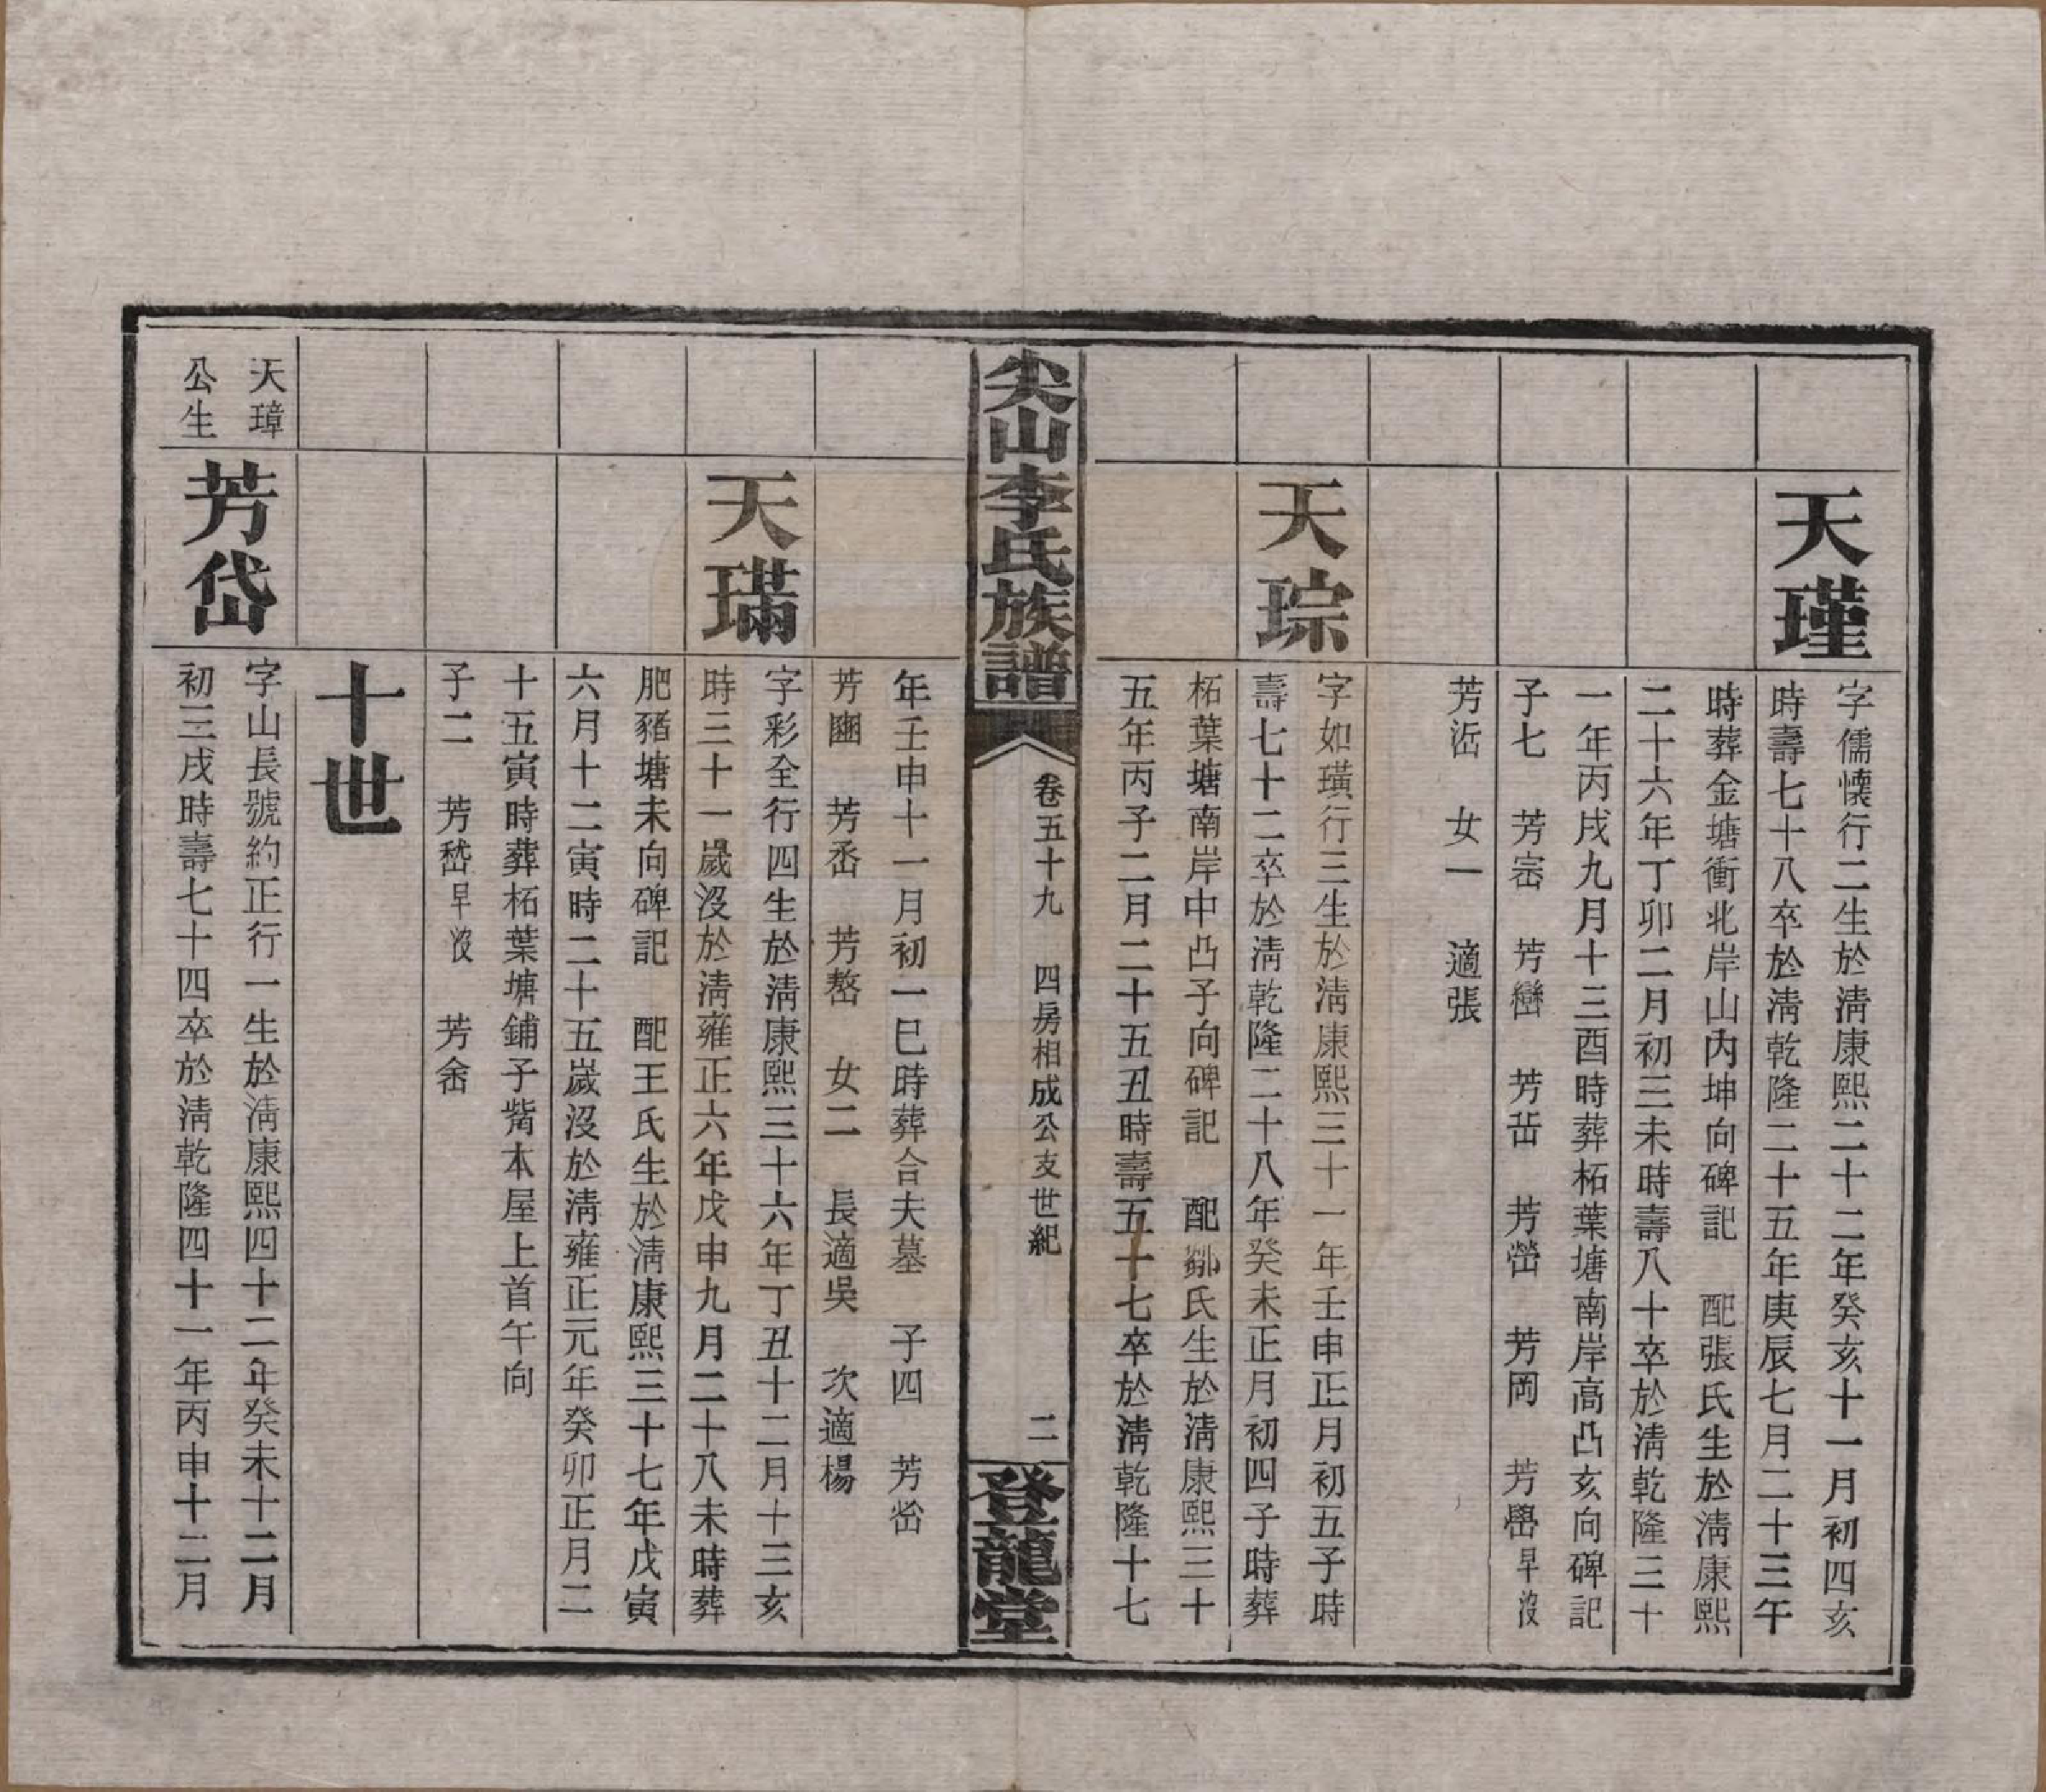 天瑾
字儒懷行二生於清康熙二十二年癸亥十一月初四亥
時壽七十八卒於清乾隆二十五年庚辰七月二十三午
時葬金塘衝北岸山內坤向碑記　配張氏生於清康熙
二十六年丁卯二月初三未時壽八十卒於清乾隆三十
一年丙戌九月十三酉時葬柘葉塘南岸高凸亥向碑記
子七　芳崈　芳巒　芳峀　芳嶅　芳岡　芳嶨早沒
芳峾　女一　適張
天琮
字如璜行三生於清康熙三十一年壬申正月初五子時
壽七十二卒於清乾隆二十八年癸未正月初四子時葬
柘葉塘南岸中凸子向碑記　配鄒氏生於清康熙三十
五年丙子二月二十五丑時壽五十七卒於清乾隆十七
尖山李氏族譜
卷五十九　四房相成公支世紀
二
登龍堂
年壬申十一月初一巳時葬合夫墓　子四　芳峃
芳豳　芳岙　芳嶅　女二　長適吳　次適楊
天璊
字彩全行四生於清康熙三十六年丁丑十二月十三亥
時三十一歲沒於清雍正六年戊申九月二十八未時葬
肥豬塘未向碑記　配王氏生於清康熙三十七年戊寅
六月十二寅時二十五歲沒於清雍正元年癸卯正月二
十五寅時葬柘葉塘鋪子觜本屋上首午向
子二　芳嵆早沒　芳峹
十世
天璋
公生
芳岱
字山長號約正行一生於清康熙四十二年癸未十二月
初三戌時壽七十四卒於清乾隆四十一年丙申十二月